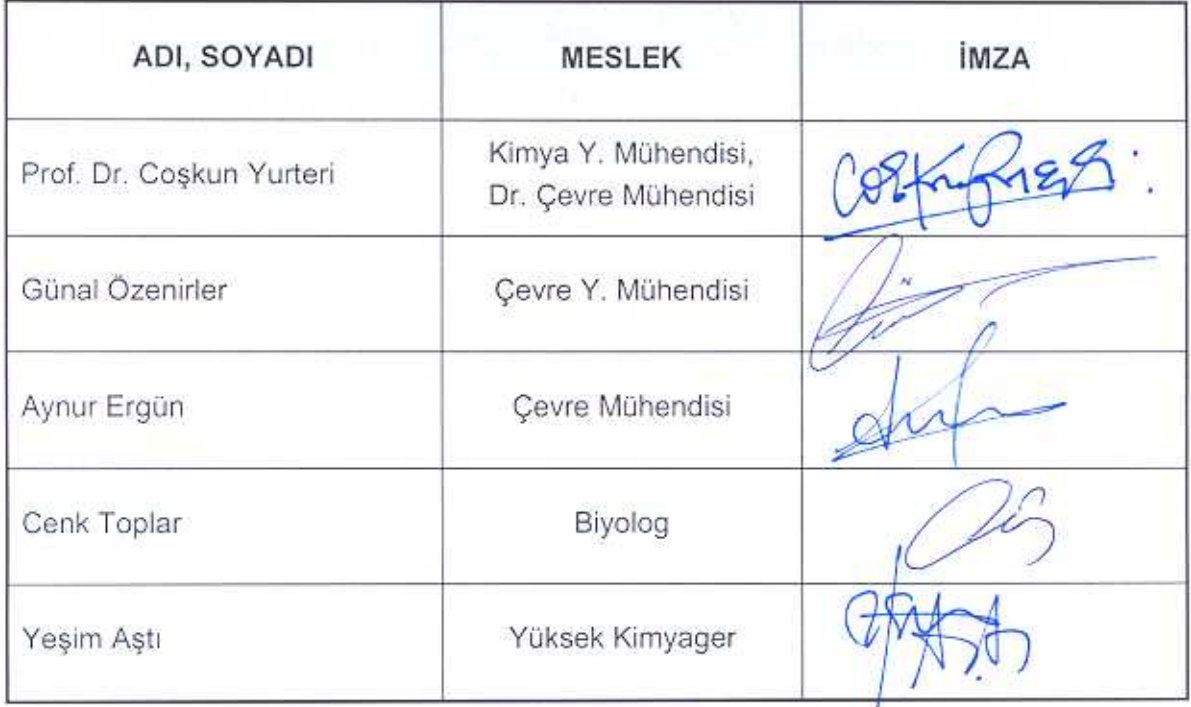 ADI, SOYADI
MESLEK
İMZA
Prof. Dr. Coşkun Yurteri
Kimya Y. Mühendisi,
Dr. Çevre Mühendisi
Günal Özenirler
Çevre Y. Mühendisi
Aynur Ergün
Çevre Mühendisi
Cenk Toplar
Biyolog
Yeşim Aştı
Yüksek Kimyager